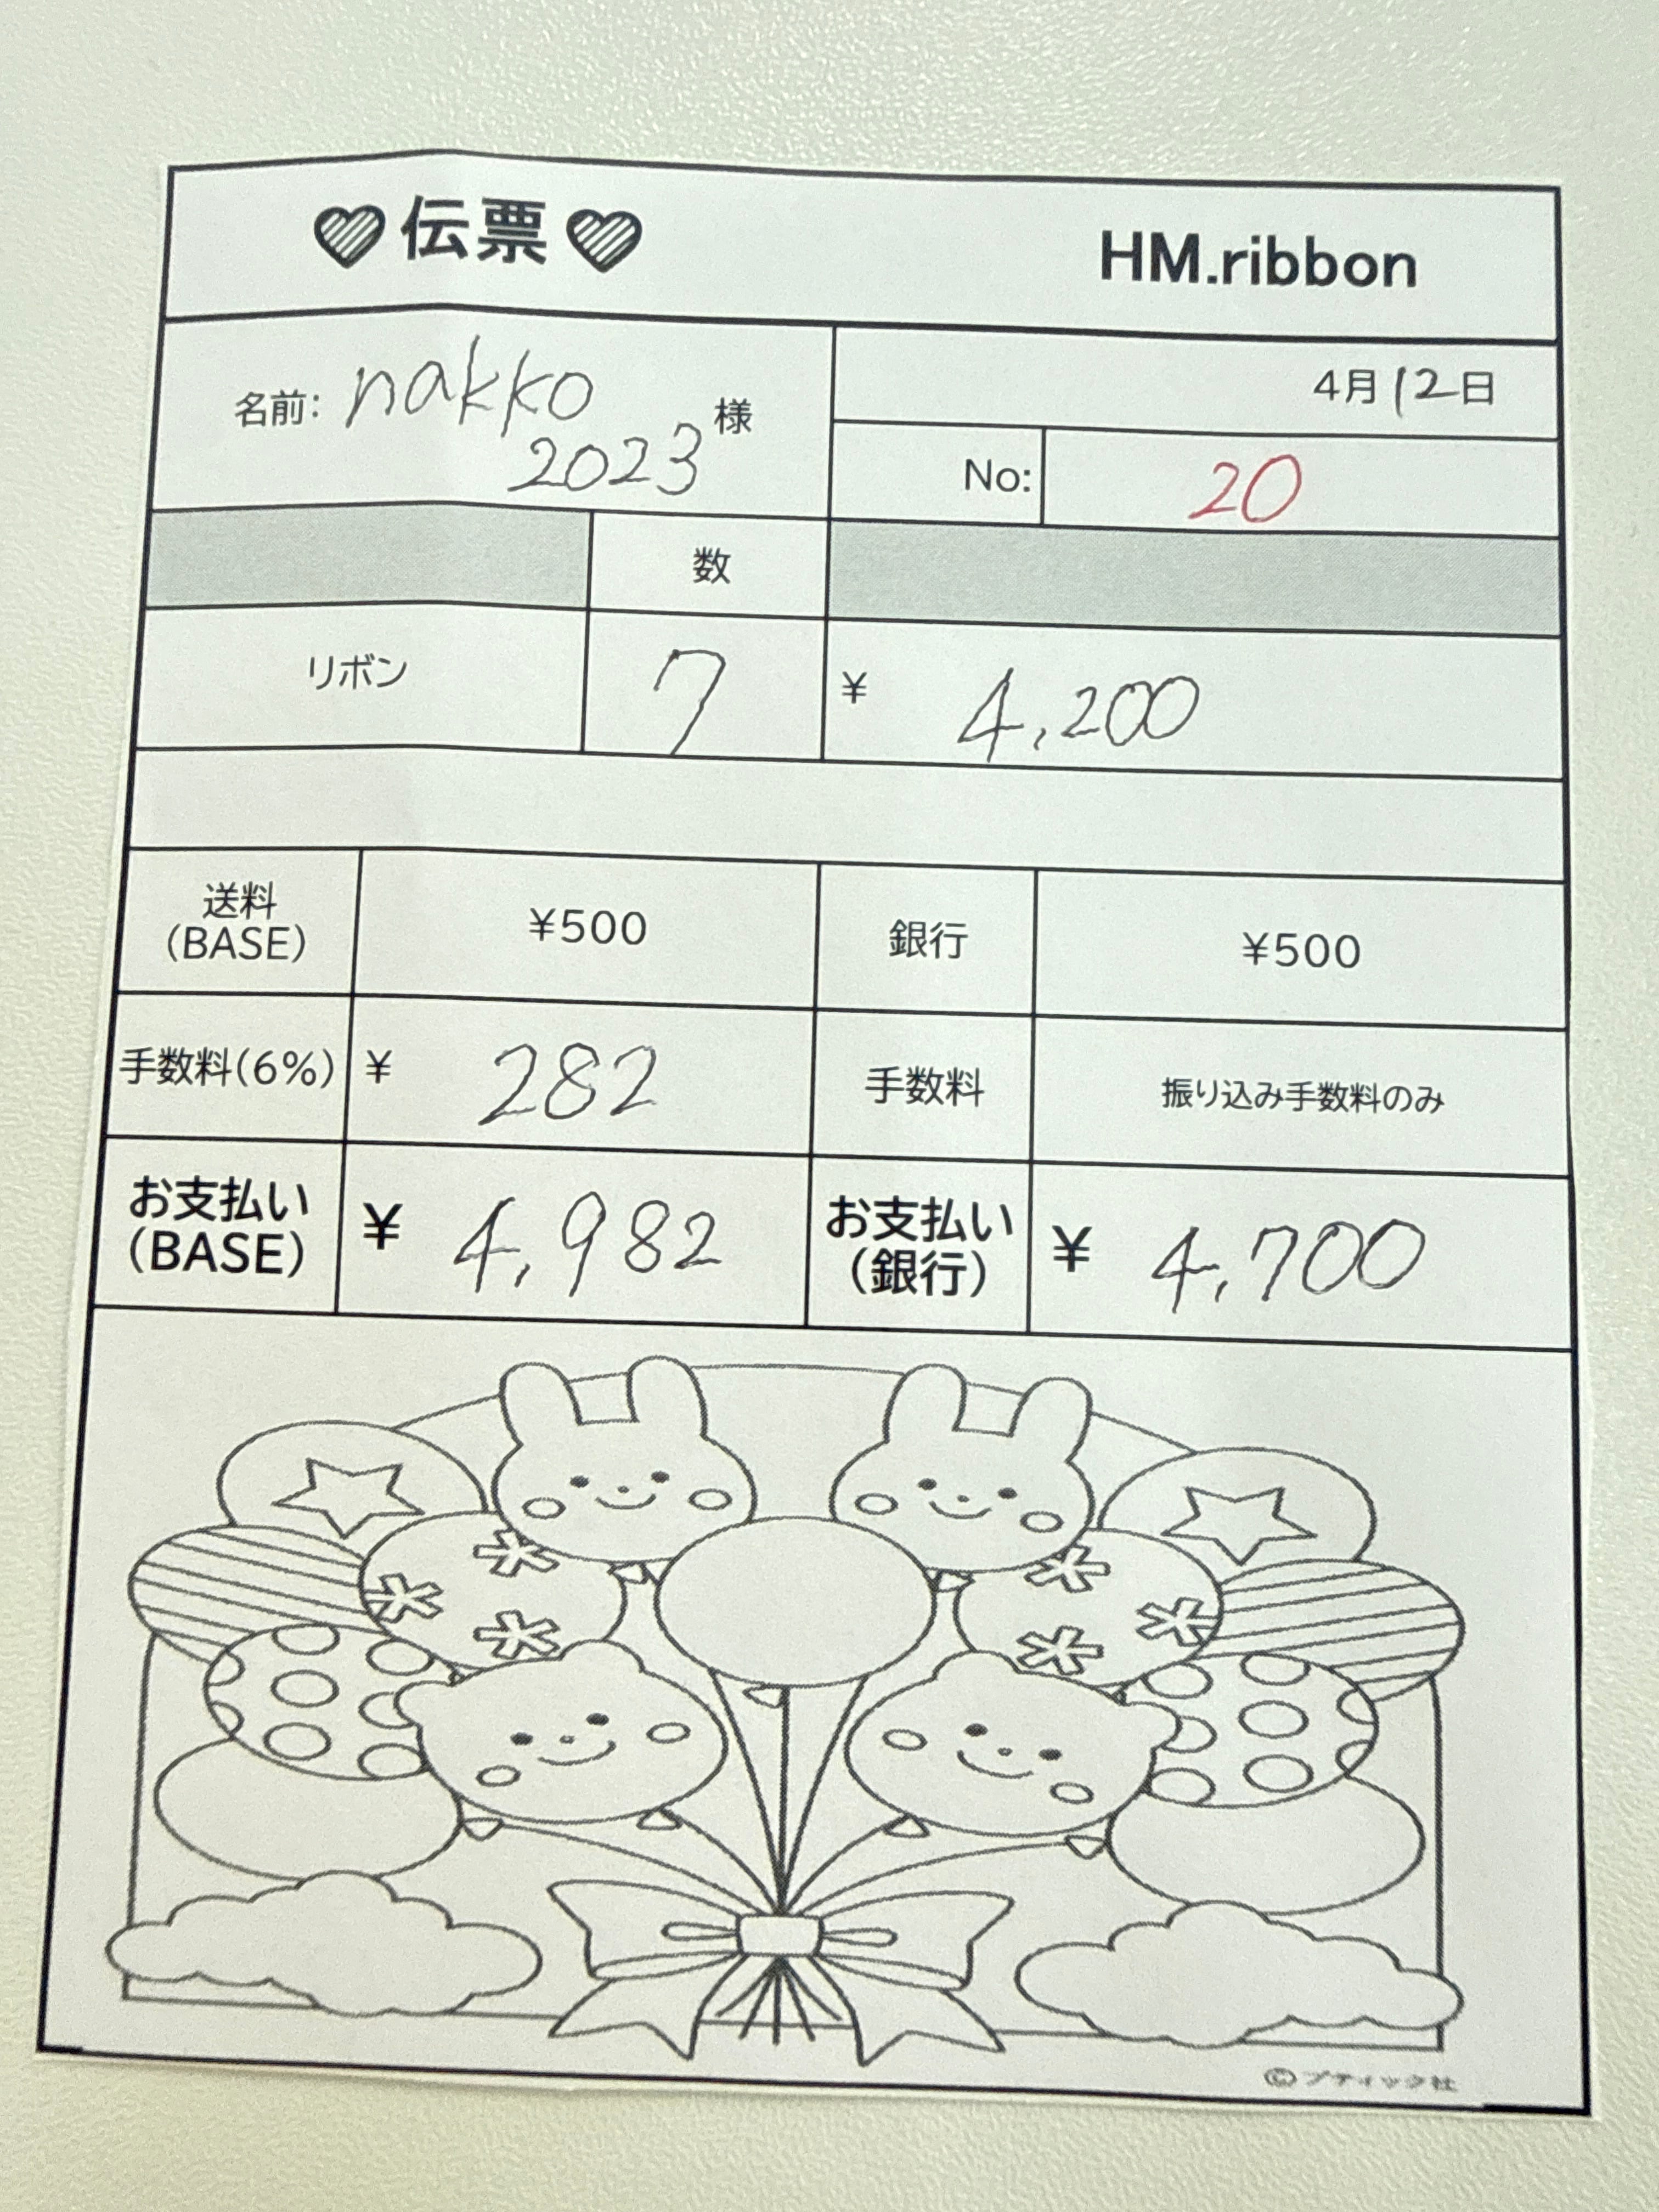 ♡伝票♡ HM.ribbon
4月12日
名前: nakko
2023 様
No: 20
数
リボン 7 ¥ 4,200
送料
(BASE) ¥500 銀行 ¥500
手数料(6%) ¥ 282 手数料 振り込み手数料のみ
お支払い
(BASE) ¥ 4,982 お支払い
(銀行) ¥ 4,700
©ブティック社